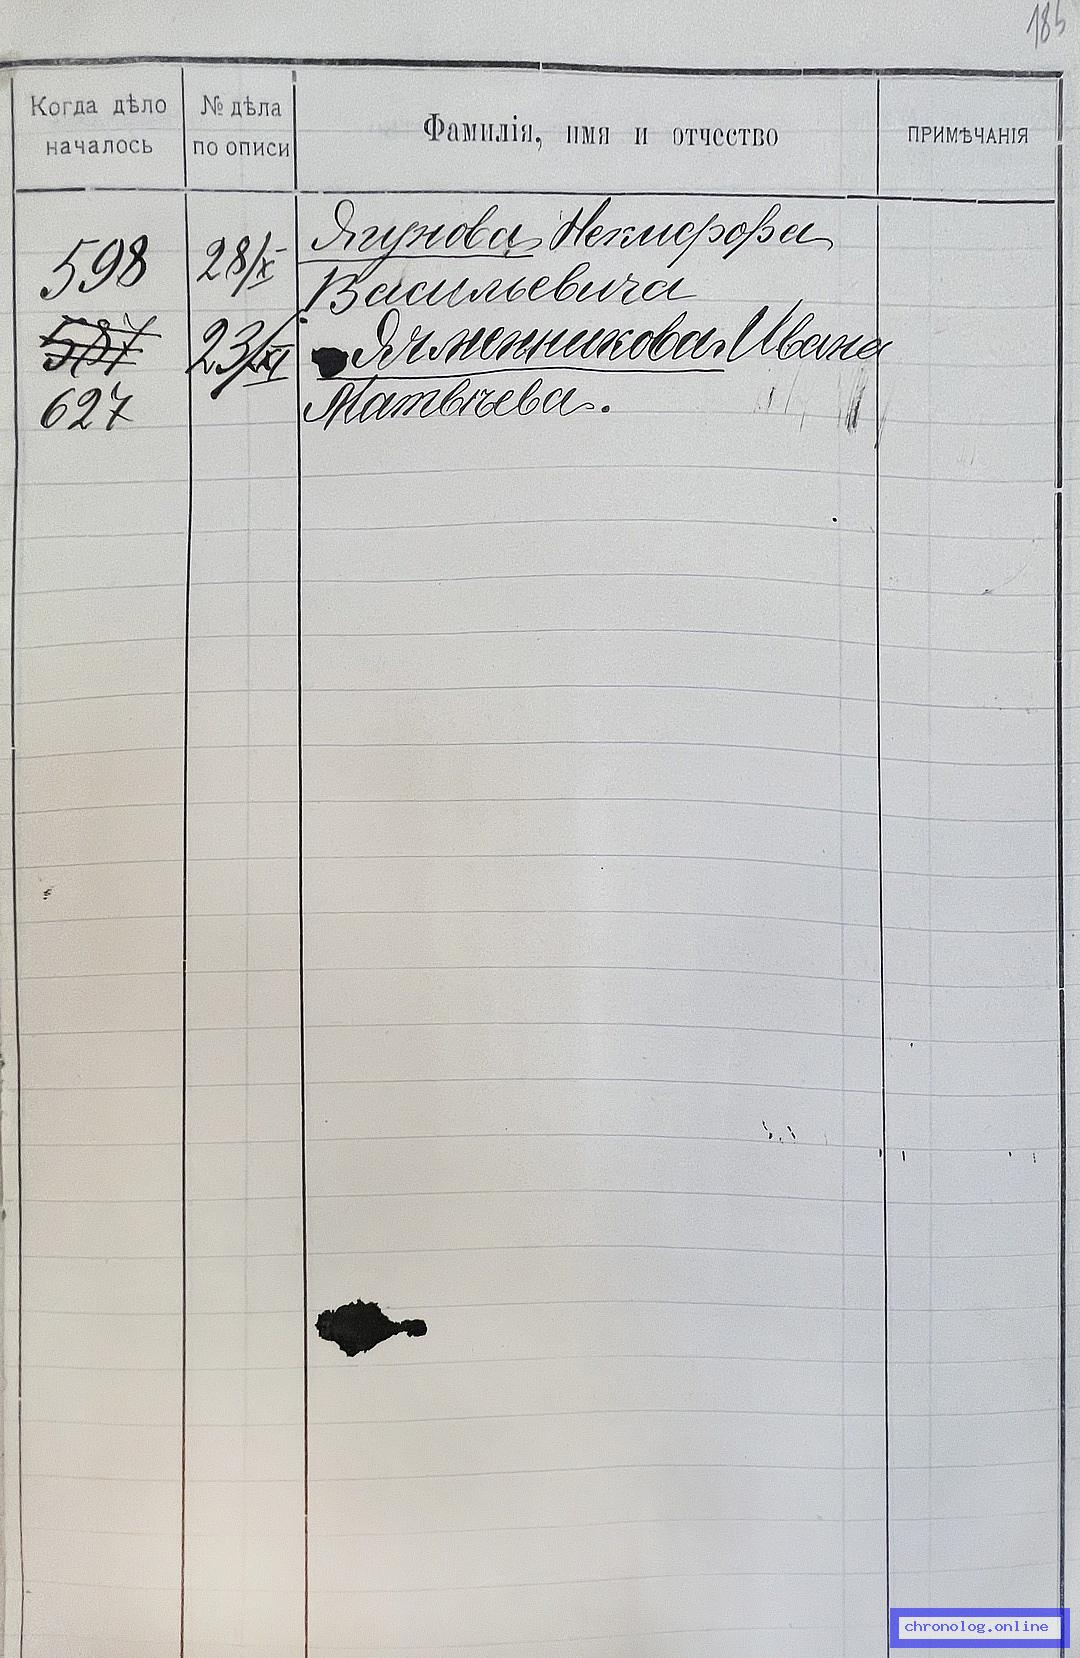 185
Когда дѣло началось
№ дѣла по описи
Фамилія, имя и отчество
ПРИМѢЧАНІЯ
598 28/X Ягунова Никифора
Васильевича
587 23/XI Ячменникова Ивана
627 Матвѣева.
chronolog.online